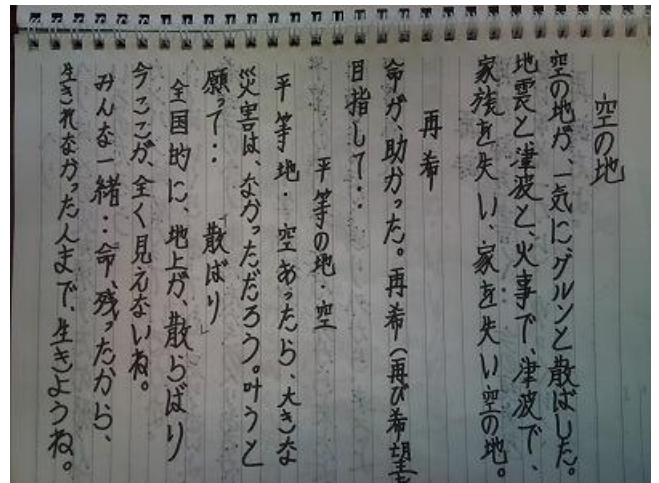 空の地
空の地が、一気に、グルンと散ばした。
地震と津波と、火事で、津波で、
家族を失い、家を失い空の地。
再希
命が、助かった。再希(再び希望を
目指して‥
平等の地・空
平等地・空あったら、大きな
災害は、なかっただろう。叶うと
願って‥
「散ばり」
全国的に、地上が、散らばり
今ここが、全く見えないね。
みんな一緒‥命、残ったから、
生きれなかった人まで、生きようね。